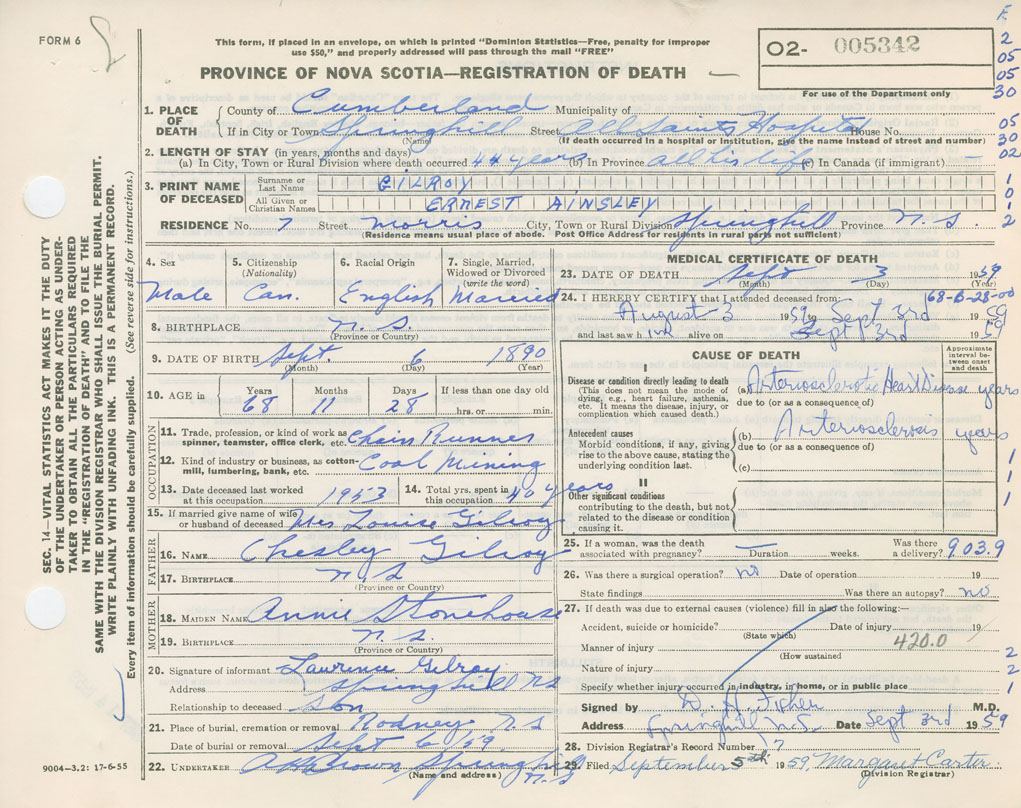 FORM 6
This form, if placed in an envelope, on which is printed "Dominion Statistics—Free, penalty for improper
use $50," and properly addressed will pass through the mail "FREE"
O2- 005342
For use of the Department only
F.
2
05
05
30
PROVINCE OF NOVA SCOTIA—REGISTRATION OF DEATH
1. PLACE OF DEATH
County of Cumberland Municipality of
If in City or Town Springhill Street All Saints Hospital House No.
(Name) (If death occurred in a hospital or institution, give the name instead of street and number)
05
30
02
2. LENGTH OF STAY (in years, months and days)
(a) In City, Town or Rural Division where death occurred 44 years (b) In Province all his life (c) In Canada (if immigrant) —
3. PRINT NAME OF DECEASED
Surname or Last Name GILROY
All Given or Christian Names ERNEST AINSLEY
1
0
1
2
RESIDENCE No. 7 Street Morris City, Town or Rural Division Springhill Province N.S.
(Residence means usual place of abode. Post Office Address for residents in rural parts not sufficient)
SEC. 14—VITAL STATISTICS ACT MAKES IT THE DUTY
OF THE UNDERTAKER OR PERSON ACTING AS UNDER-
TAKER TO OBTAIN ALL THE PARTICULARS REQUIRED
IN THE "REGISTRATION OF DEATH" AND TO FILE THE
SAME WITH THE DIVISION REGISTRAR WHO SHALL ISSUE THE BURIAL PERMIT.
WRITE PLAINLY WITH UNFADING INK. THIS IS A PERMANENT RECORD.
Every item of information should be carefully supplied. (See reverse side for instructions.)
4. Sex Male
5. Citizenship (Nationality) Can.
6. Racial Origin English
7. Single, Married, Widowed or Divorced (write the word) Married
8. BIRTHPLACE N.S.
(Province or Country)
9. DATE OF BIRTH Sept. 6 1890
(Month) (Day) (Year)
10. AGE in Years 68 Months 11 Days 28 If less than one day old hrs. or min.
OCCUPATION
11. Trade, profession, or kind of work as spinner, teamster, office clerk, etc. Chain Runner
12. Kind of industry or business, as cotton-mill, lumbering, bank, etc. Coal Mining
13. Date deceased last worked at this occupation 1953
14. Total yrs. spent in this occupation 40 years
15. If married give name of wife or husband of deceased Mrs Louise Gilroy
FATHER
16. NAME Chesley Gilroy
17. BIRTHPLACE N.S
(Province or Country)
MOTHER
18. MAIDEN NAME Annie Stonehouse
19. BIRTHPLACE N.S.
(Province or Country)
20. Signature of informant Lawrence Gilroy
Address Springhill NS
Relationship to deceased Son
21. Place of burial, cremation or removal Rodney N.S
Date of burial or removal Sept 6/59
22. UNDERTAKER Brown Springhill N.S
(Name and address)
9004-3.2: 17-6-55
MEDICAL CERTIFICATE OF DEATH
23. DATE OF DEATH Sept 3 1959
(Month) (Day) (Year)
24. I HEREBY CERTIFY that I attended deceased from: 68-B-28-00
August 3 1959 to Sept 3rd 1959
and last saw him alive on Sept 3rd 1959
CAUSE OF DEATH
Approximate interval between onset and death
I
Disease or condition directly leading to death
(This does not mean the mode of dying, e.g., heart failure, asthenia, etc. It means the disease, injury, or complication which caused death.)
(a) Arteriosclerotic Heart Disease years
due to (or as a consequence of)
Antecedent causes
Morbid conditions, if any, giving rise to the above cause, stating the underlying condition last.
(b) Arteriosclerosis years
due to (or as a consequence of)
(c)
II
Other significant conditions
contributing to the death, but not related to the disease or condition causing it.
1
1
1
25. If a woman, was the death associated with pregnancy? — Duration weeks. Was there a delivery? 903.9
26. Was there a surgical operation? no Date of operation 19
State findings Was there an autopsy? no
27. If death was due to external causes (violence) fill in also the following:—
Accident, suicide or homicide? Date of injury 19
(State which)
420.0
Manner of injury
(How sustained)
Nature of injury
Specify whether injury occurred in industry, in home, or in public place
2
2
1
Signed by M.D.
Address Springhill N.S. Date Sept 3rd 1959
28. Division Registrar's Record Number 7
29. Filed September 5th 1959, Margaret Carter
(Division Registrar)